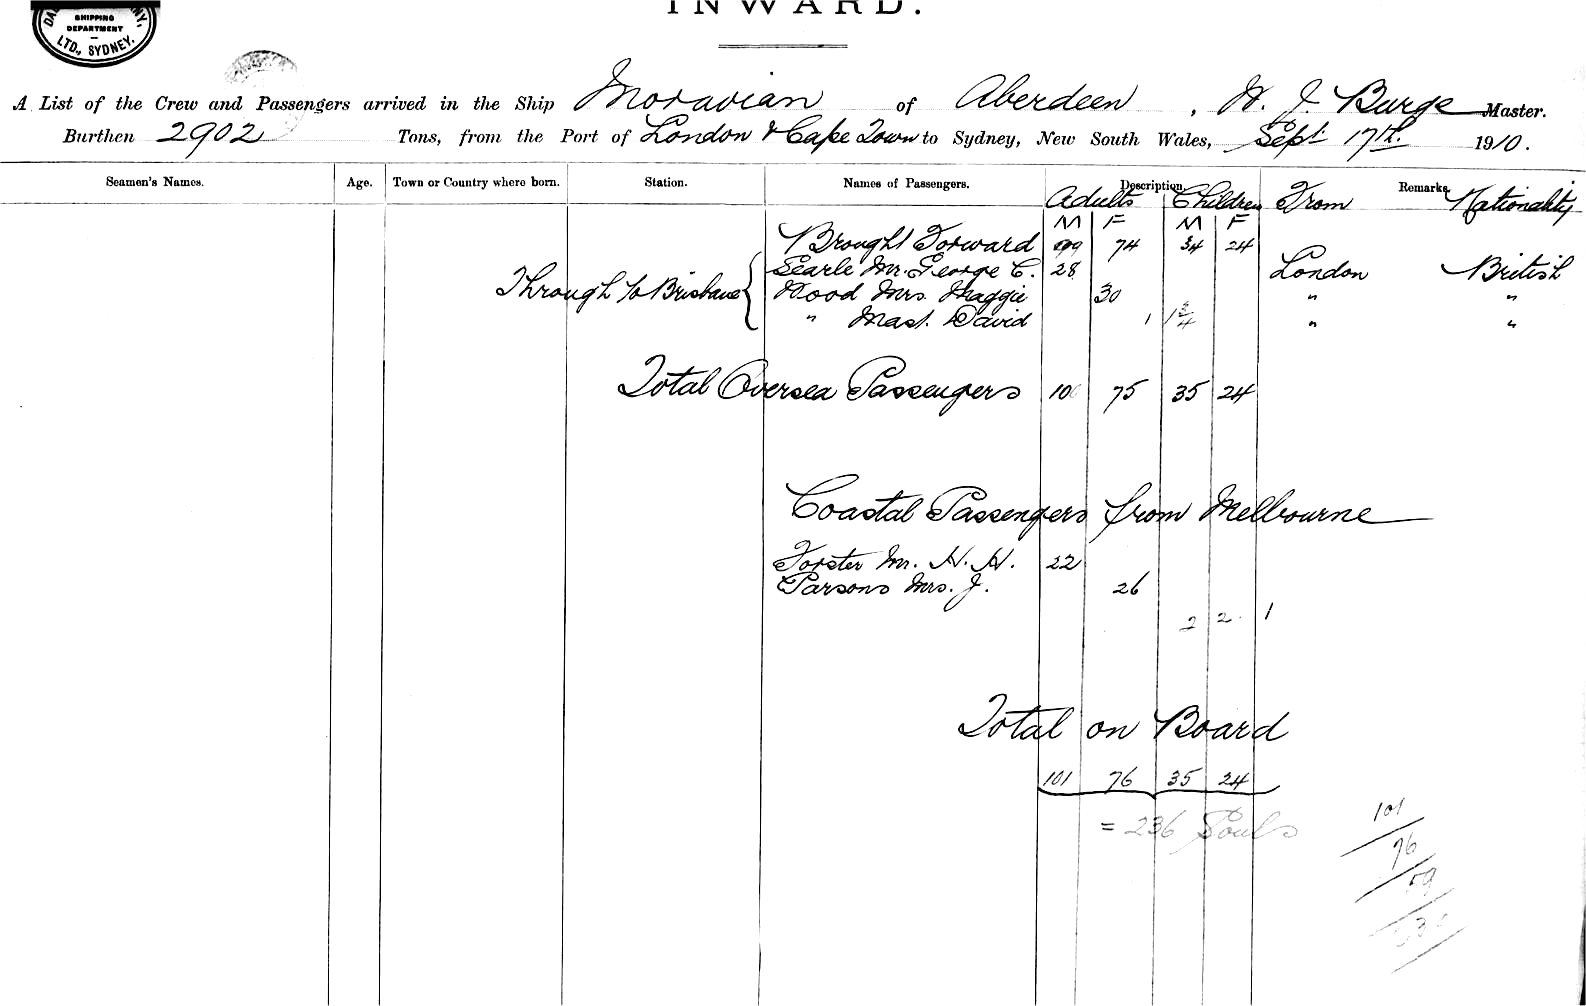 INWARD.
SHIPPING
DEPARTMENT
LTD., SYDNEY.
A List of the Crew and Passengers arrived in the Ship Moravian of Aberdeen, H. J. Burge Master.
Burthen 2902 Tons, from the Port of London & Cape Town to Sydney, New South Wales, Sept. 17th. 1910.
Seamen's Names. Age. Town or Country where born. Station. Names of Passengers. Description. Remarks.
Adults Children From Nationality
M F M F
Brought Forward 99 74 34 24
Searle Mr. George C. 28 London British
Through to Brisbane { Wood Mrs. Maggie 30 " "
" Mast. David 1 1 3/4 " "
Total Oversea Passengers 100 75 35 24
Coastal Passengers from Melbourne
Forster Mr. H. H. 22
Parsons Mrs. J. 26
2 2 1
Total on Board
101 76 35 24
= 236 Souls
101
76
59